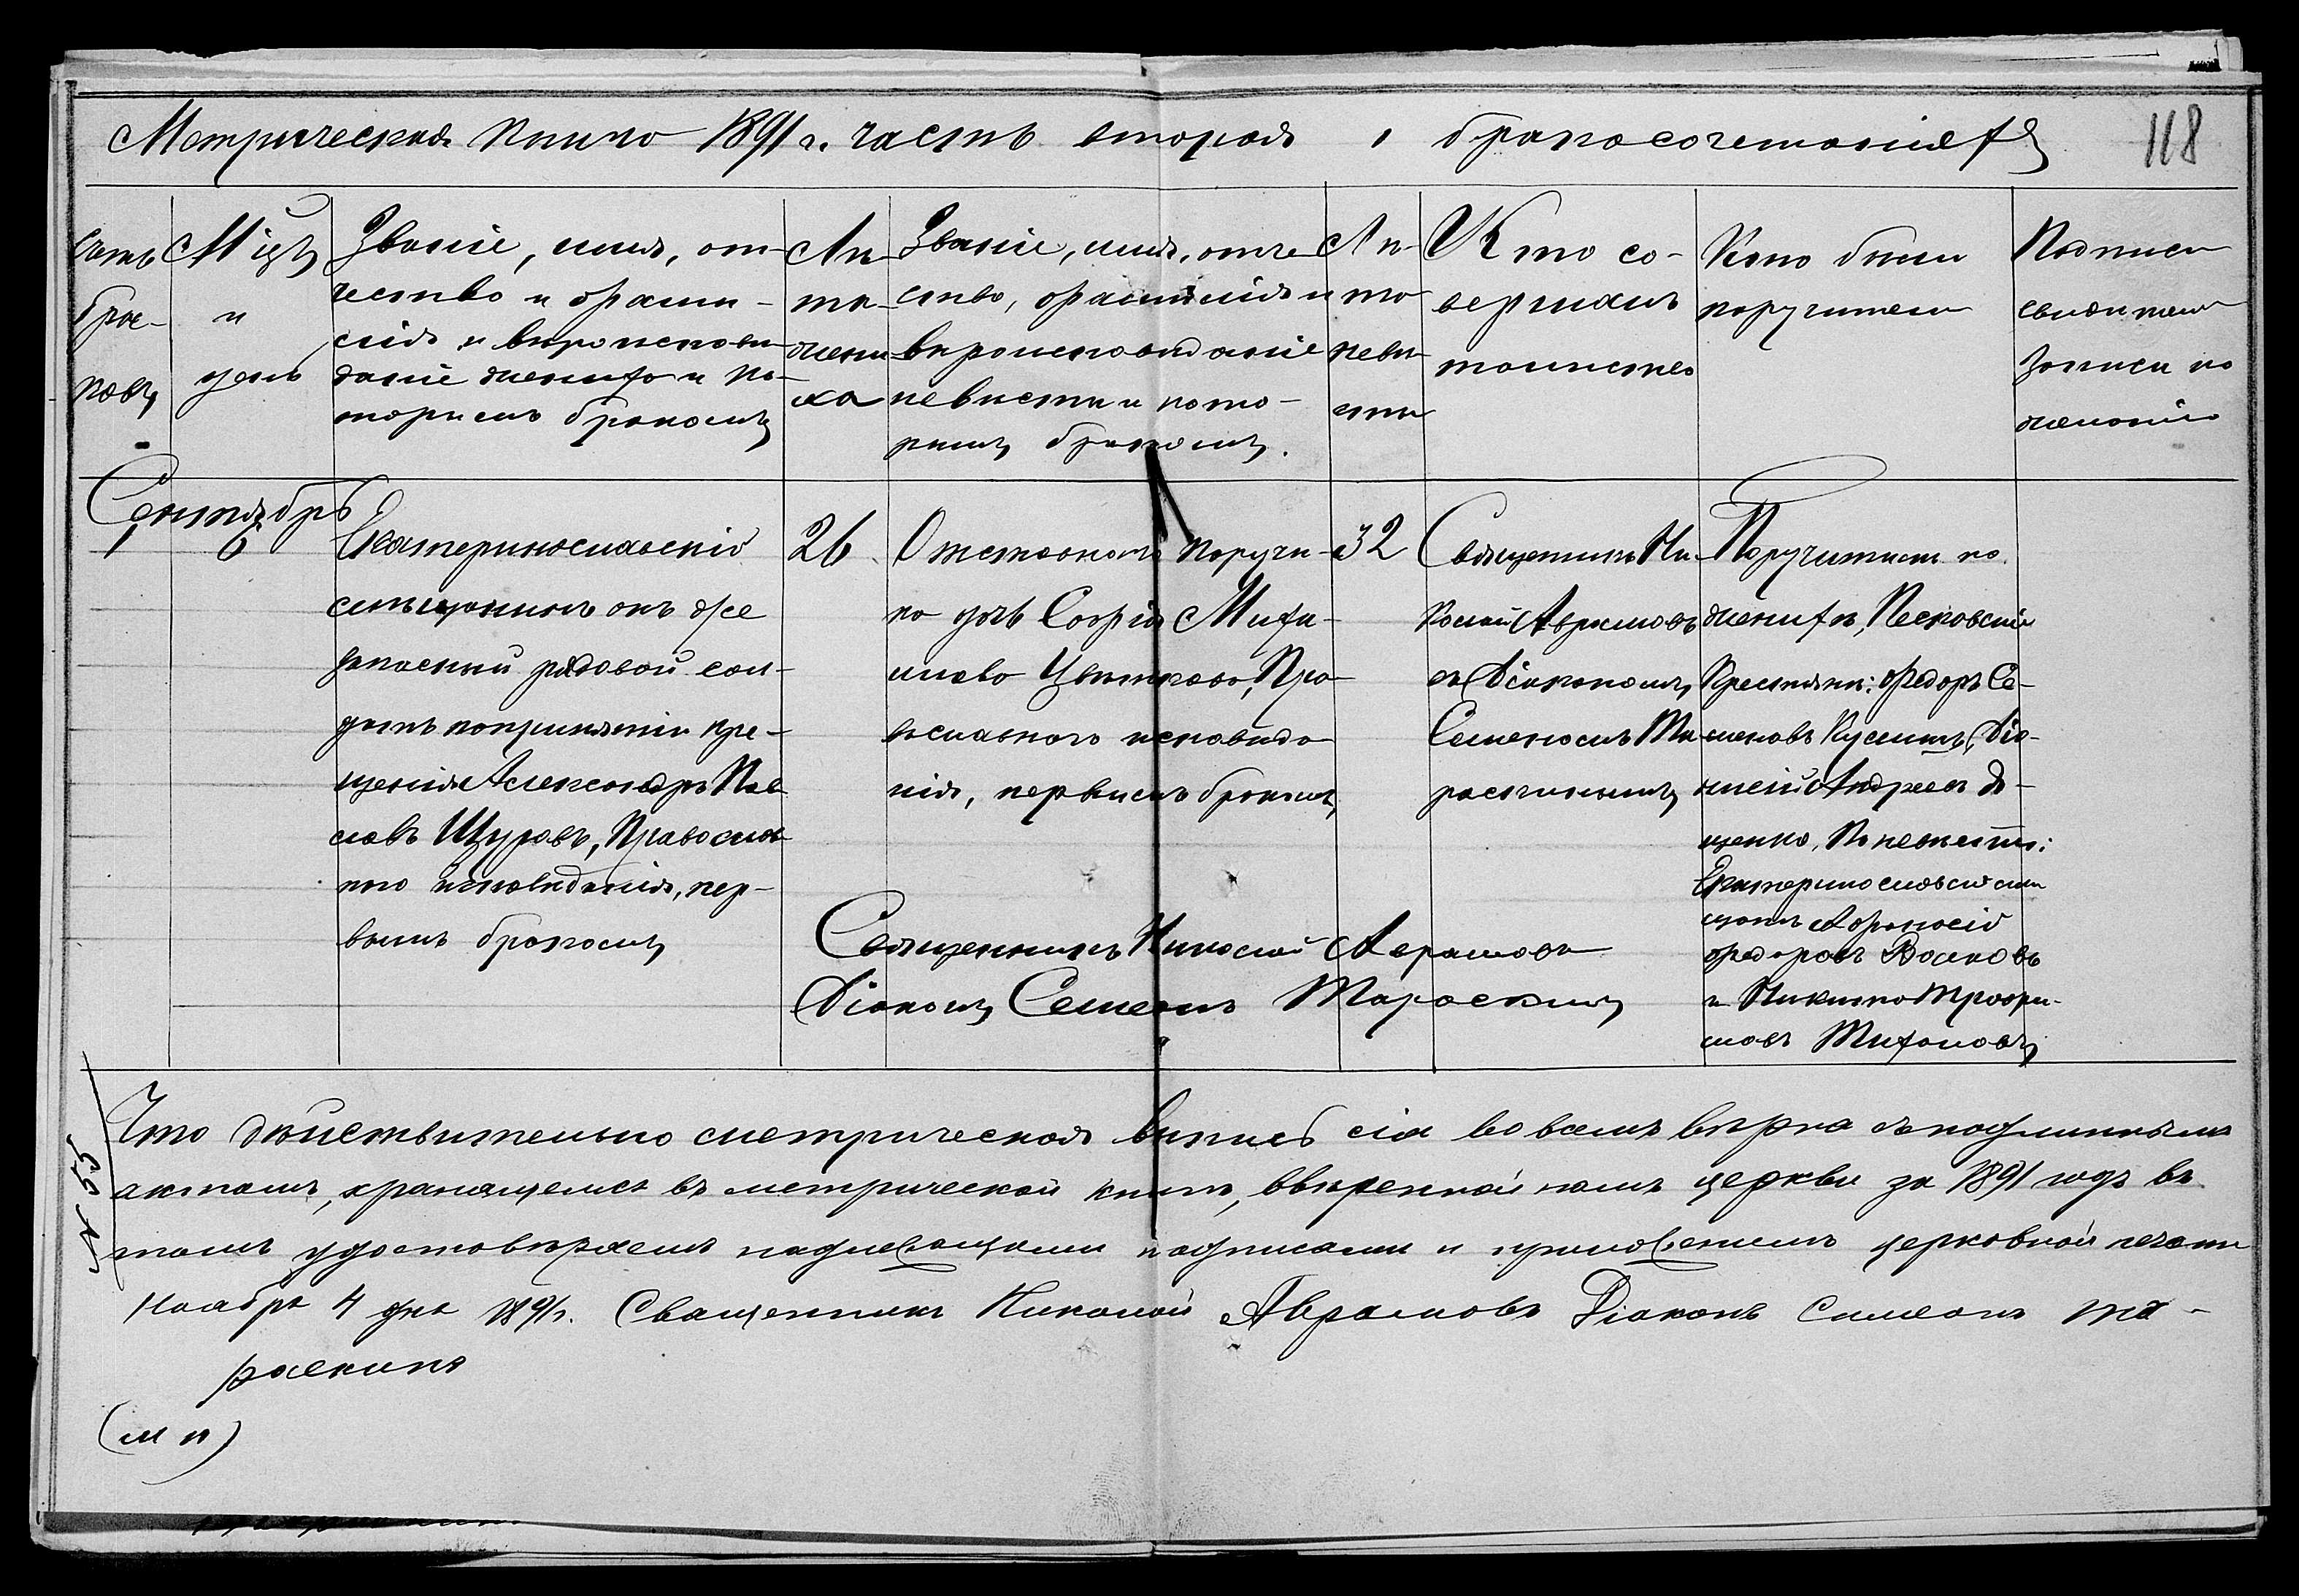 Метрическая книга 1891 г. часть вторая о бракосочетавшихся
118
Счетъ
бра-
ковъ
Мцъ
и
день
Званіе, имя, от-
чество и фами-
лія и вѣроисповѣ-
даніе жениха и ко-
торымъ бракомъ
Лѣ-
та
жени-
ха
Званіе, имя, отче-
ство, фамилія и
вѣроисповѣданіе
невѣсты и кото-
рымъ бракомъ.
Лѣ-
та
невѣ-
сты
Кто со-
вершалъ
таинство
Кто были
поручители
Подписи
свидѣтелей
записи по
желанію
Сентябрь
1
6
Екатеринославскій
мѣщанинъ онъ же
запасный рядовой сол-
датъ попринятіи кре-
щенія Александръ Пав
ловъ Щуровъ, Православ
наго исповѣданія, пер-
вымъ бракомъ
26
Отставного поручи-
ка дочь Софія Михаи-
лова Цвѣткова, Пра-
вославнаго исповѣда
нія, первымъ бракомъ
32
Священникъ Ни-
колай Аврамовъ
съ Діакономъ
Семеномъ Та-
раскинымъ
Поручители по
женихѣ, Песковскіе
Крестьяне: Федоръ Се-
меновъ Кузминъ, Діо-
нисій Андреевъ
щенко, По невѣстѣ:
Екатеринославскіе мѣ
щане Афонасій
Федоровъ Волковъ
и Никита Трофи-
мовъ Тихоновъ
Священникъ Николай Аврамовъ
Діаконъ Семеонъ Тараскинъ
№ 53
Что дѣйствительно метрическая выпись сія во всемъ вѣрна съ подлиннымъ
актомъ, хранящемся въ метрической книгѣ, ввѣренной намъ церкви за 1891 годъ въ
томъ удостовѣряемъ надлежащими подписами и приложеніемъ церковной печати
Ноября 4 дня 1891 г. Священникъ Николай Аврамовъ Діаконъ Симеонъ Та-
раскинъ
(М п)